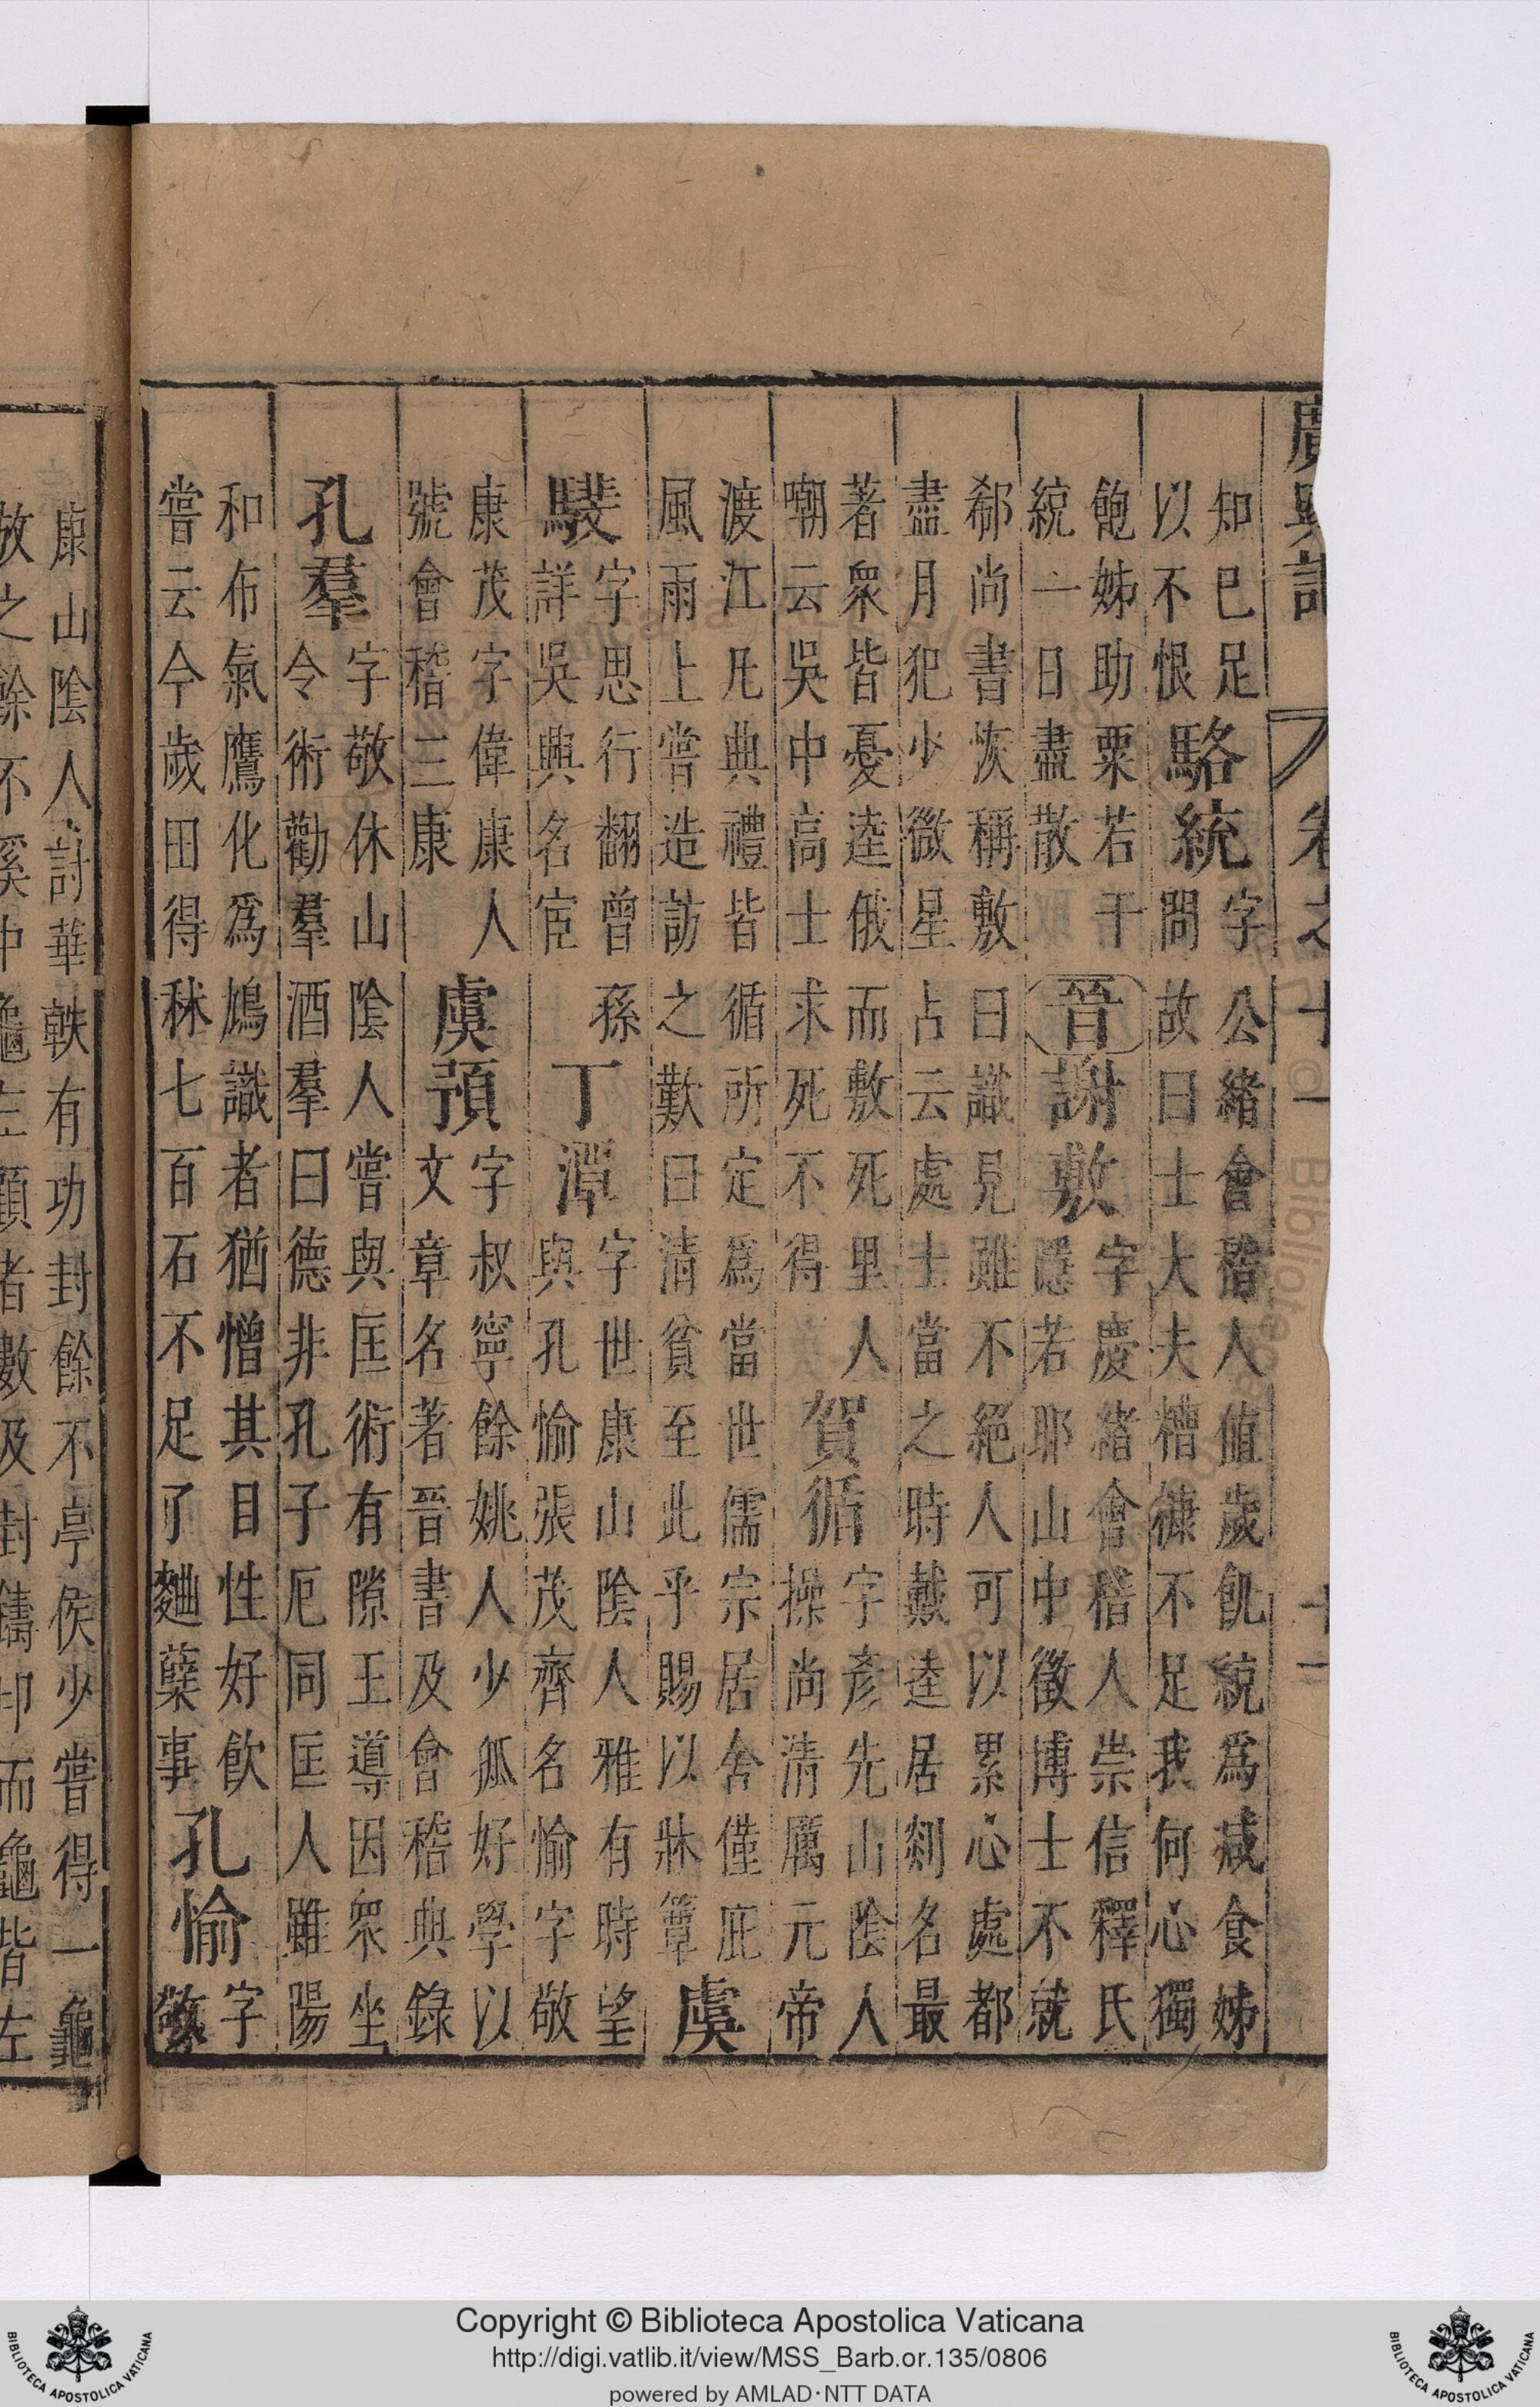 廣輿記 卷之十一 十一
知已足
以不恨
駱統
字公緒會稽人值歲飢統為減食姊
問故曰士大夫糟糠不足我何心獨
飽姊助粟若干
統一日盡散
晉
謝敷
字慶緒會稽人崇信釋氏
隱若耶山中徵博士不就
郗尚書恢稱敷曰識見雖不絕人可以累心處都
盡月犯少微星占云處士當之時戴逵居剡名最
著衆皆憂逵俄而敷死里人
嘲云吳中高士求死不得
賀循
字彥先山陰人
操尚清厲元帝
渡江凡典禮皆循所定為當世儒宗居舍僅庇
風雨上嘗造訪之歎曰清貧至此乎賜以牀簟
虞
騑
字思行翻曾孫
詳吳興名宦
丁潭
字世康山陰人雅有時望
與孔愉張茂齊名愉字敬
康茂字偉康人
號會稽三康
虞預
字叔寧餘姚人少孤好學以
文章名著晉書及會稽典錄
孔羣
字敬休山陰人嘗與匡術有隙王導因衆坐
令術勸羣酒羣曰德非孔子厄同匡人雖陽
和布氣鷹化為鳩識者猶憎其目性好飲
嘗云今歲田得秫七百石不足了麯蘖事
孔愉
字
敬
康山陰人討華軼有功封餘不亭侯少嘗得一龜
放之餘不溪中龜左顧者數及封鑄印而龜皆左
Copyright © Biblioteca Apostolica Vaticana
http://digi.vatlib.it/view/MSS_Barb.or.135/0806
powered by AMLAD·NTT DATA
BIBLIOTECA APOSTOLICA VATICANA
BIBLIOTECA APOSTOLICA VATICANA